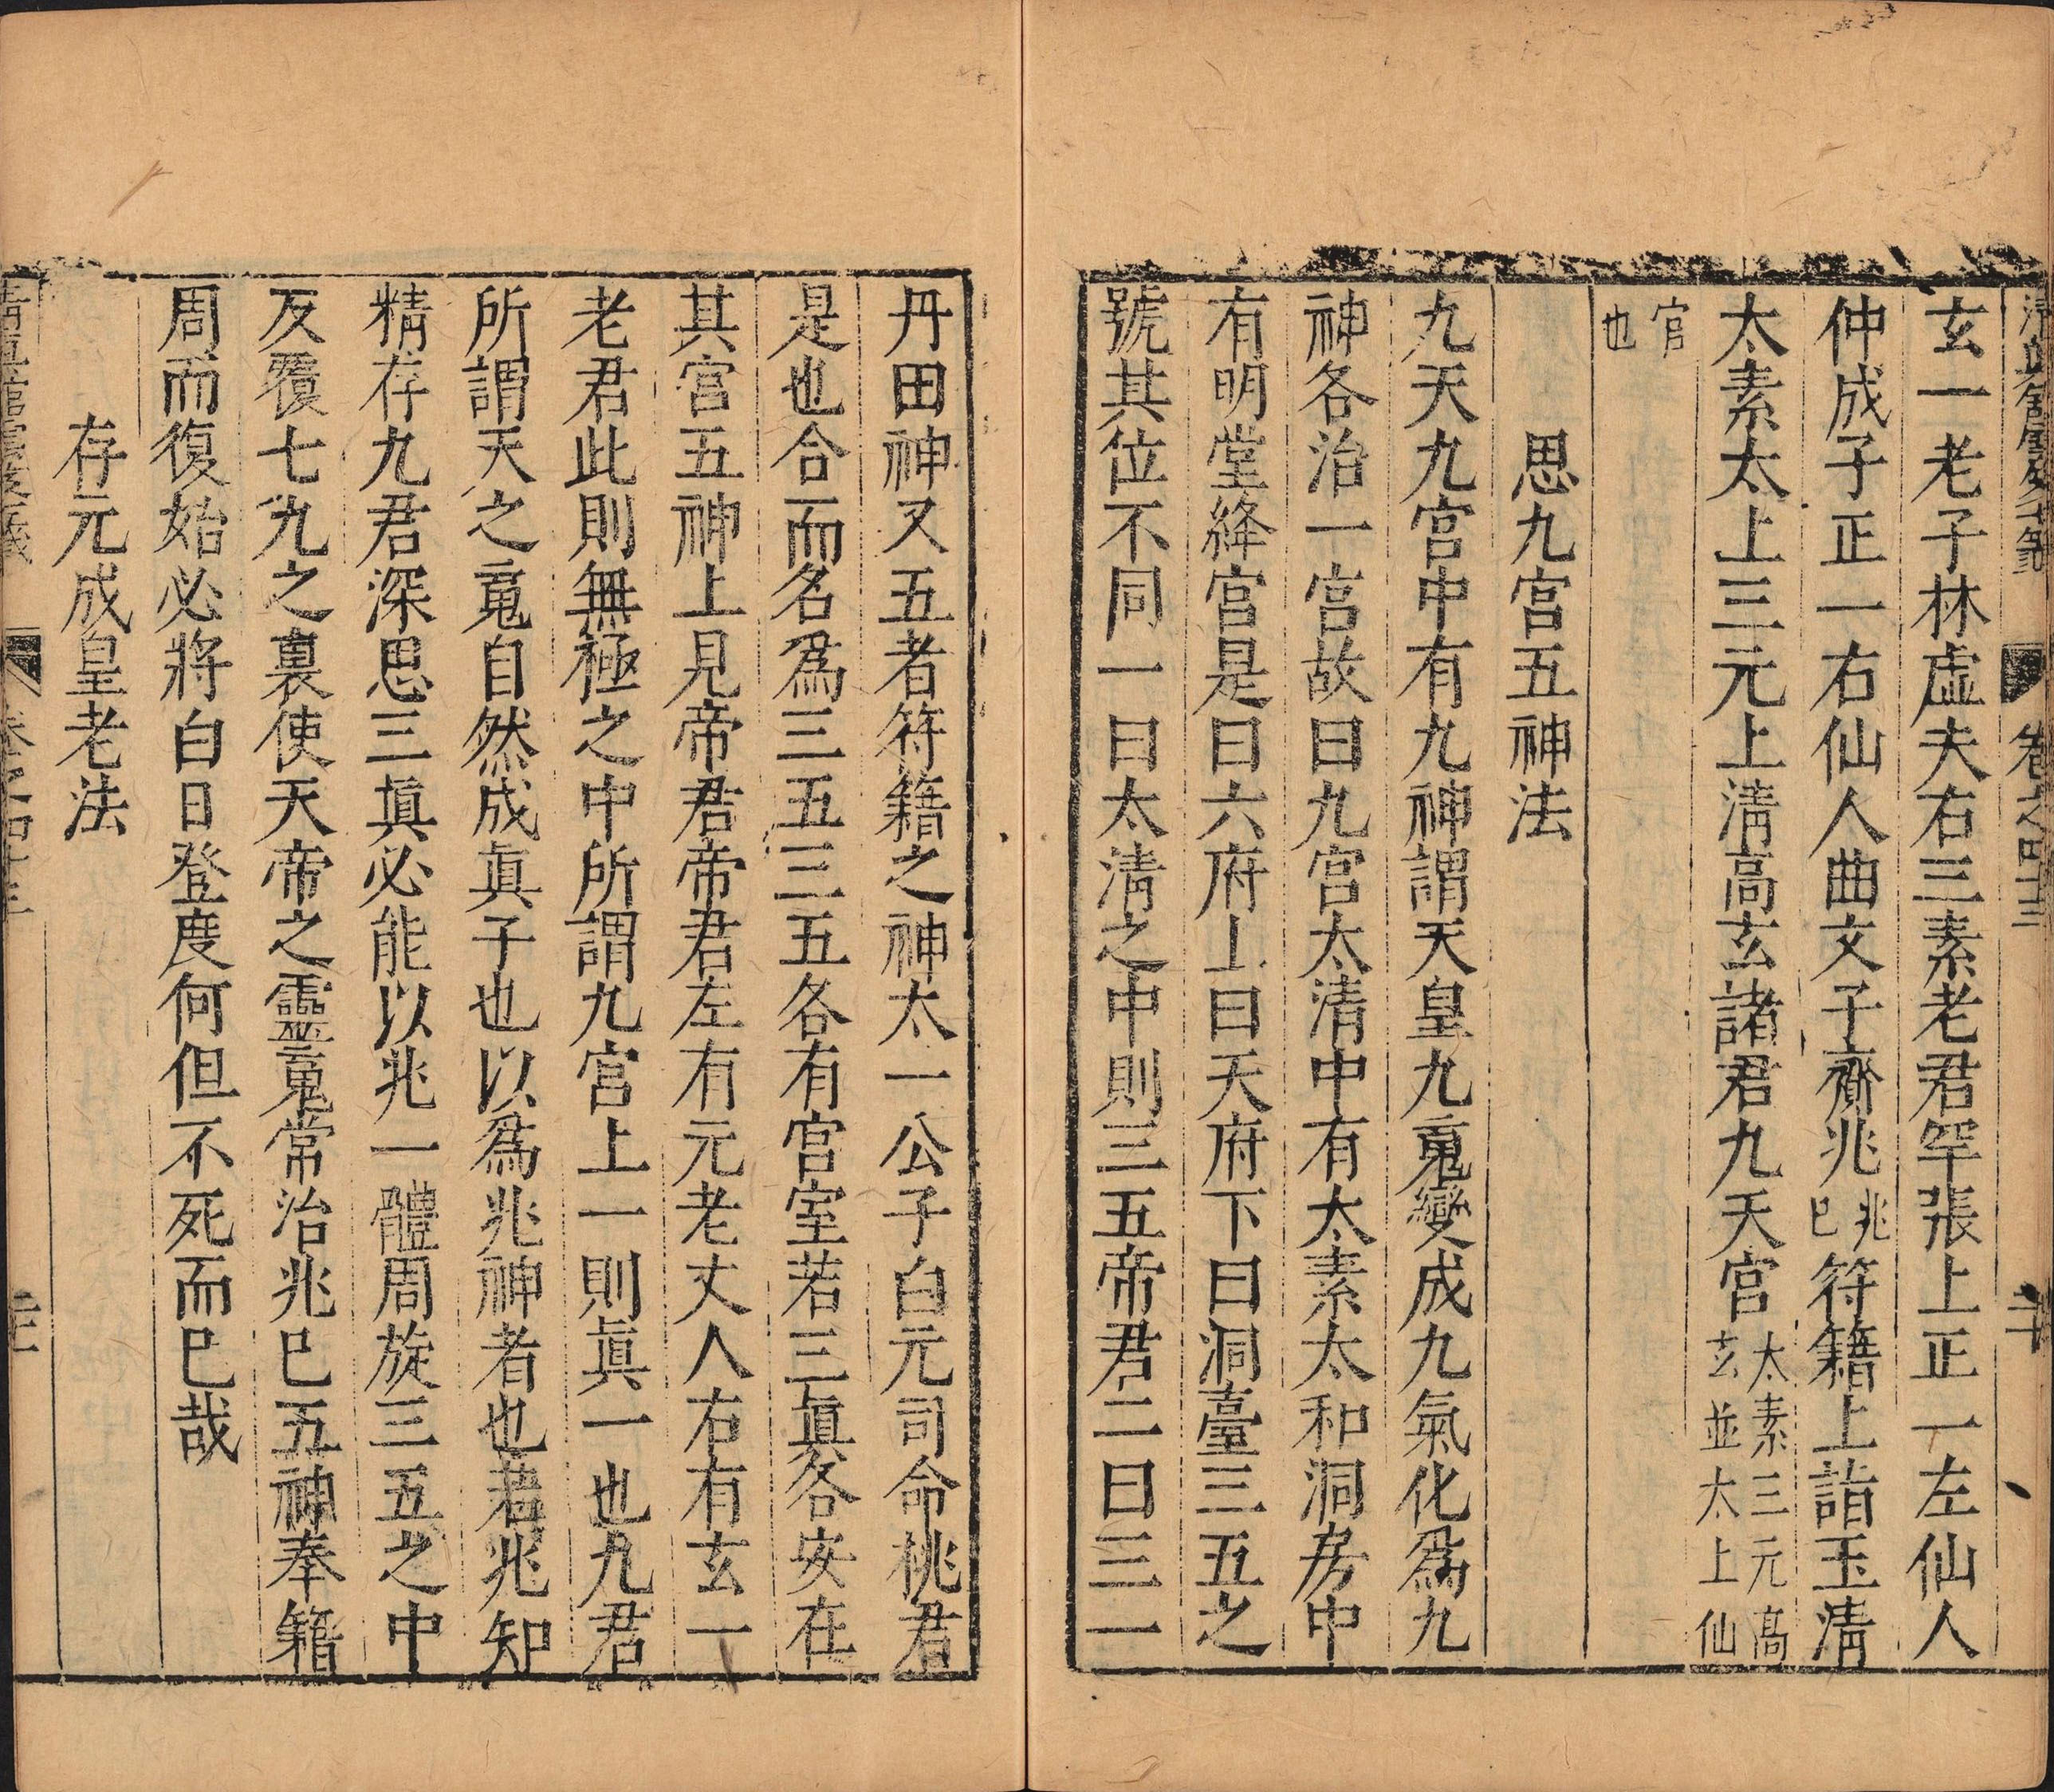 卷之四十三 二十
玄一老子林虛夫右三素老君罕張上正一左仙人
仲成子正一右仙人曲文子齎兆兆巳符籍上詣玉淸
太素太上三元上淸高玄諸君九天宮太素三元高玄並太上仙
官也
思九宮五神法
九天九宮中有九神謂天皇九䰟變成九氣化爲九
神各治一宮故曰九宮太清中有太素太和洞房中
有明堂絳宮是曰六府上曰天府下曰洞臺三五之
號其位不同一曰太淸之中則三五帝君二曰三一
丹田神又五者符籍之神太一公子白元司命桃君
是也合而名爲三五三五各有宮室若三眞各安在
其宮五神上見帝君帝君左有元老丈人右有玄一
老君此則無極之中所謂九宮上一則眞一也九君
所謂天之䰟自然成眞子也以爲兆神者也若兆知
精存九君深思三眞必能以兆一體周旋三五之中
反覆七九之裏使天帝之靈䰟常治兆巳五神奉籍
周而復始必將白日登度何但不死而巳哉
存元成皇老法